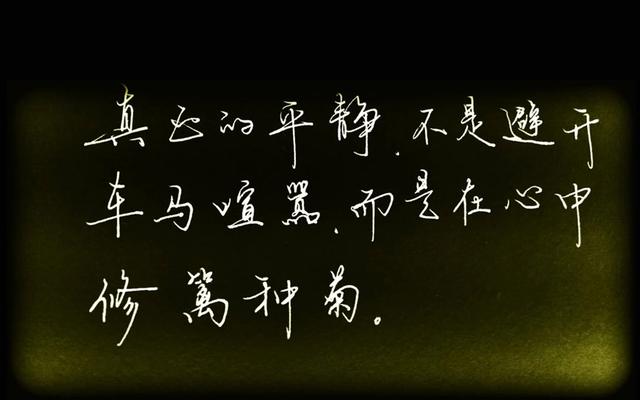 真正的平静,不是避开
车马喧嚣,而是在心中
修篱种菊。